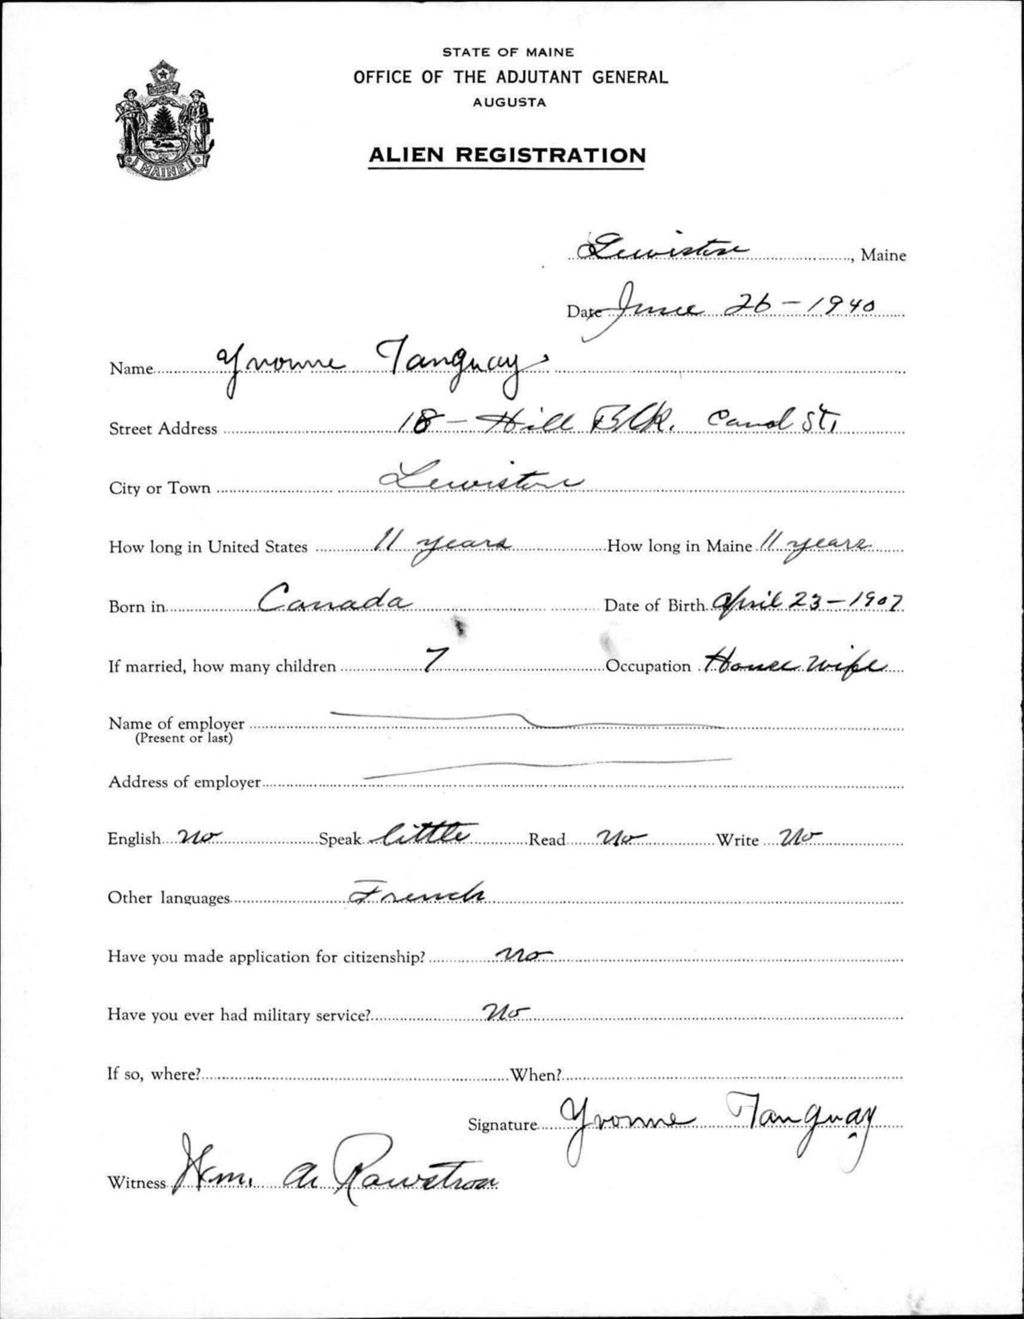 STATE OF MAINE
OFFICE OF THE ADJUTANT GENERAL
AUGUSTA
ALIEN REGISTRATION
MAINE
Lewiston, Maine
Date June 26-1940
Name Yvonne Tanguay.
Street Address 18 - Hill Blk. Canal St,
City or Town Lewiston
How long in United States 11 years How long in Maine 11 years
Born in Canada Date of Birth April 23-1907
If married, how many children 7 Occupation House wife
Name of employer
(Present or last)
Address of employer
English no Speak little Read No Write No
Other languages French
Have you made application for citizenship? no
Have you ever had military service? No
If so, where? When?
Signature Yvonne Tanguay
Witness Wm. A Rawstron